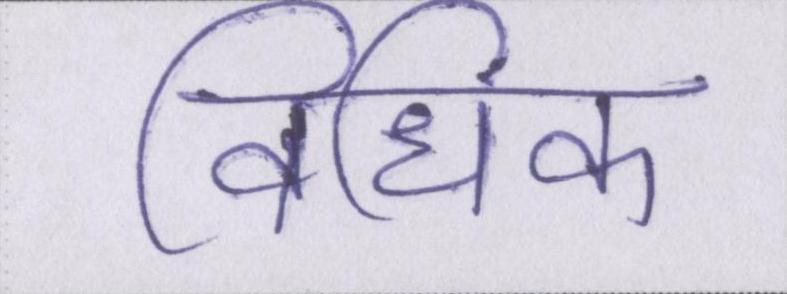 विधिंक